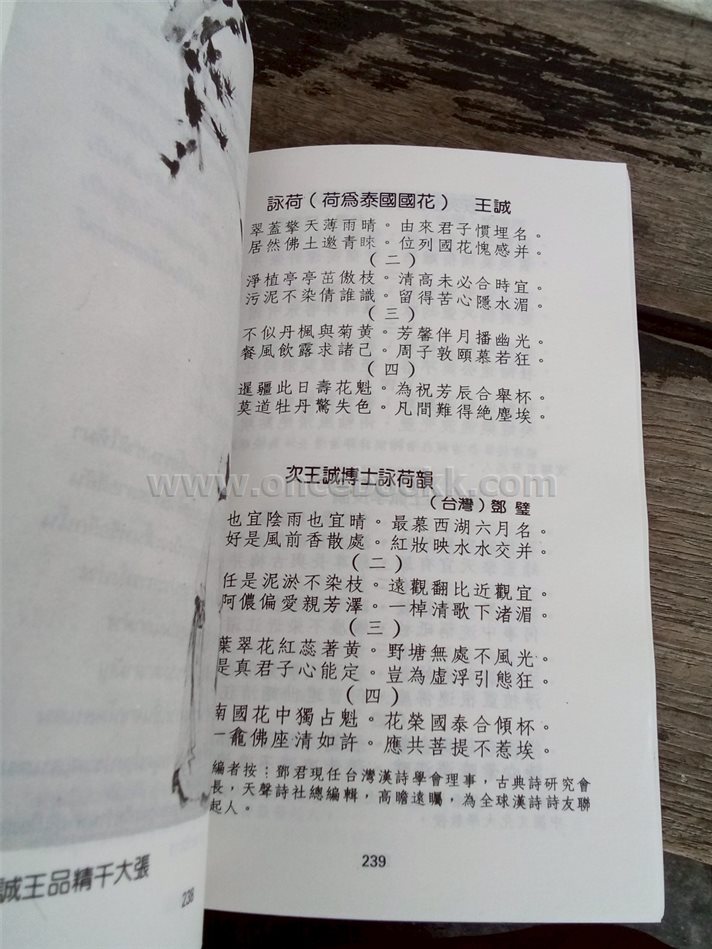 詠荷（荷爲泰國國花）　王誠
翠蓋擎天薄雨晴。由來君子慣埋名。
居然佛土邀青睞。位列國花愧感并。
（二）
淨植亭亭茁傲枝。清高未必合時宜。
污泥不染倩誰識。留得苦心隱水湄。
（三）
不似丹楓與菊黃。芳馨伴月播幽光。
餐風飲露求諸己。周子敦頤慕若狂。
（四）
暹疆此日壽花魁。為祝芳辰合舉杯。
莫道牡丹驚失色。凡間難得絶塵埃。
次王誠博士詠荷韻
（台灣）鄧 璧
也宜陰雨也宜晴。最慕西湖六月名。
好是風前香散處。紅妝映水水交并。
（二）
任是泥淤不染枝。遠觀翻比近觀宜。
阿儂偏愛親芳澤。一棹清歌下渚湄。
（三）
葉翠花紅蕊著黃。野塘無處不風光。
是真君子心能定。豈為虛浮引態狂。
（四）
南國花中獨占魁。花榮國泰合傾杯。
一龕佛座清如許。應共菩提不惹埃。
編者按：鄧君現任台灣漢詩學會理事，古典詩研究會
長，天聲詩社總編輯，高瞻遠矚，為全球漢詩詩友聯
起人。
239
誠王品精千大張
238
www.oncebookk.com